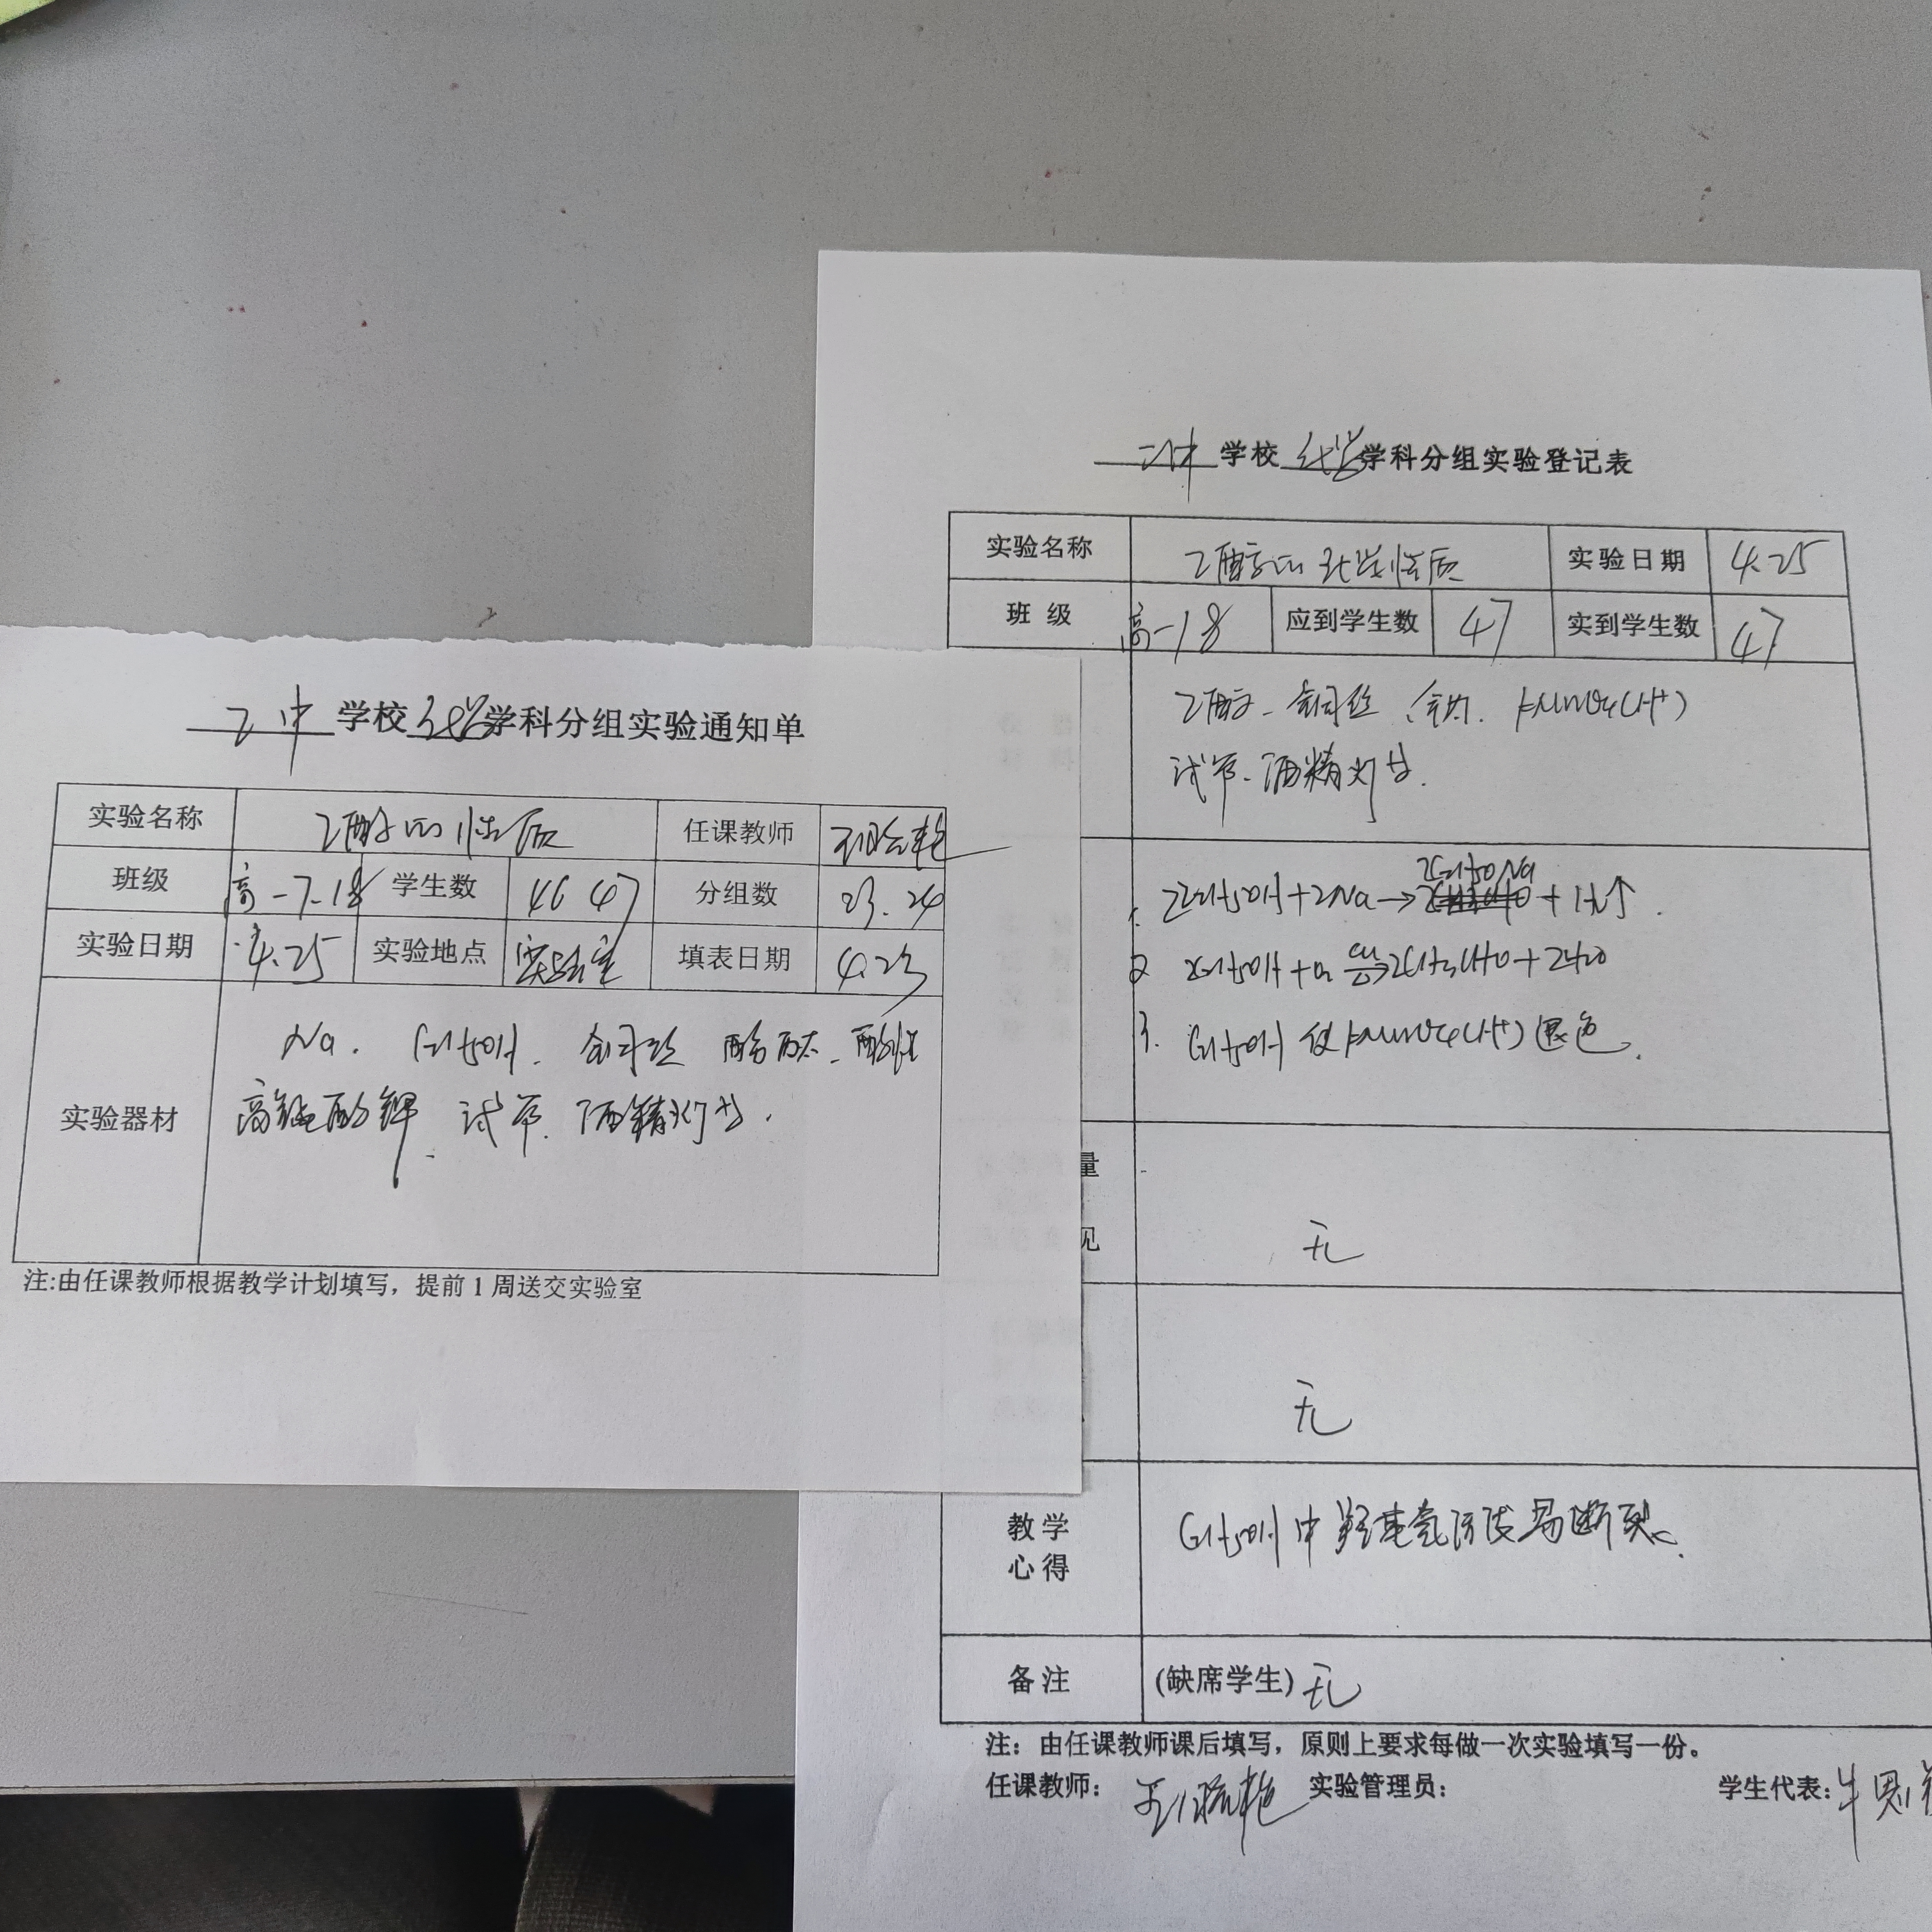 二中 学校 化学 学科分组实验通知单
实验名称 乙醇的性质 任课教师
班级 高一7.18 学生数 46 47 分组数 23.24
实验日期 4.25 实验地点 实验室 填表日期 4.23
实验器材
Na. C2H5OH. 铜丝 酚酞. 酸性
高锰酸钾. 试管. 酒精灯等.
注:由任课教师根据教学计划填写，提前1周送交实验室
二中 学校 化学 学科分组实验登记表
实验名称 乙醇的化学性质 实验日期 4.25
班 级 高一18 应到学生数 47 实到学生数 47
乙醇. 铜丝. 金属钠. KMnO4(H+)
试管. 酒精灯等.
1. 2C2H5OH+2Na→2C2H5ONa+H2↑.
2 2C2H5OH+O2 Cu △ → 2CH3CHO+2H2O
3. C2H5OH 使KMnO4(H+)褪色.
量
见
无
无
教学
心得
C2H5OH中羟基氢原子易断裂.
备注 (缺席学生) 无
注：由任课教师课后填写，原则上要求每做一次实验填写一份。
任课教师： 实验管理员： 学生代表：